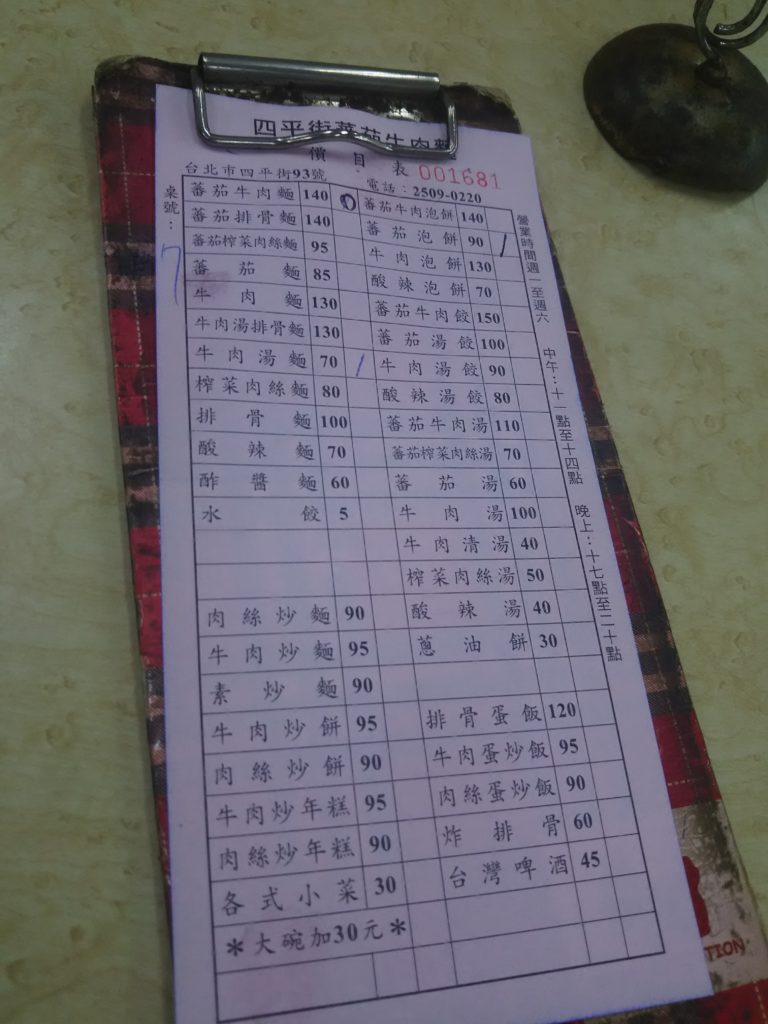 四平街蕃茄牛肉麵
價目表 001681
台北市四平街93號 電話：2509-0220
桌號：7
蕃茄牛肉麵 140
蕃茄排骨麵 140
蕃茄榨菜肉絲麵 95
蕃茄麵 85
牛肉麵 130
牛肉湯排骨麵 130
牛肉湯麵 70 1
榨菜肉絲麵 80
排骨麵 100
酸辣麵 70
酢醬麵 60
水餃 5
肉絲炒麵 90
牛肉炒麵 95
素炒麵 90
牛肉炒餅 95
肉絲炒餅 90
牛肉炒年糕 95
肉絲炒年糕 90
各式小菜 30
＊大碗加30元＊
蕃茄牛肉泡餅 140
蕃茄泡餅 90 1
牛肉泡餅 130
酸辣泡餅 70
蕃茄牛肉餃 150
蕃茄湯餃 100
牛肉湯餃 90
酸辣湯餃 80
蕃茄牛肉湯 110
蕃茄榨菜肉絲湯 70
蕃茄湯 60
牛肉湯 100
牛肉清湯 40
榨菜肉絲湯 50
酸辣湯 40
蔥油餅 30
排骨蛋飯 120
牛肉蛋炒飯 95
肉絲蛋炒飯 90
炸排骨 60
台灣啤酒 45
營業時間週一至週六 中午：十一點至十四點 晚上：十七點至二十點
TION